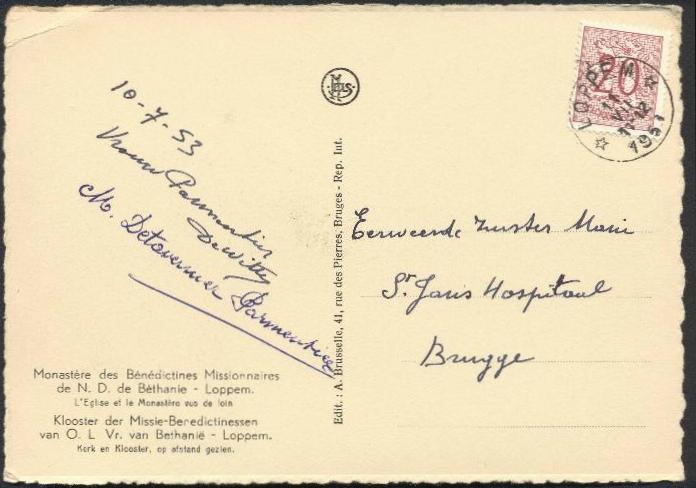 10-7-53
Vrouw Parmentier
Dewitte
M. Detavernier Parmentier
Monastère des Bénédictines Missionnaires
de N. D. de Béthanie - Loppem.
L'Eglise et le Monastère vus de loin
Klooster der Missie-Benedictinessen
van O. L. Vr. van Bethanië - Loppem.
Kerk en Klooster, op afstand gezien.
Edit. : A. Brusselle, 41, rue des Pierres, Bruges - Rep. Int.
20
LOPPEM
11
VII
11-12
Eerweerde Zuster Marie
St Jans Hospitaal
Brugge